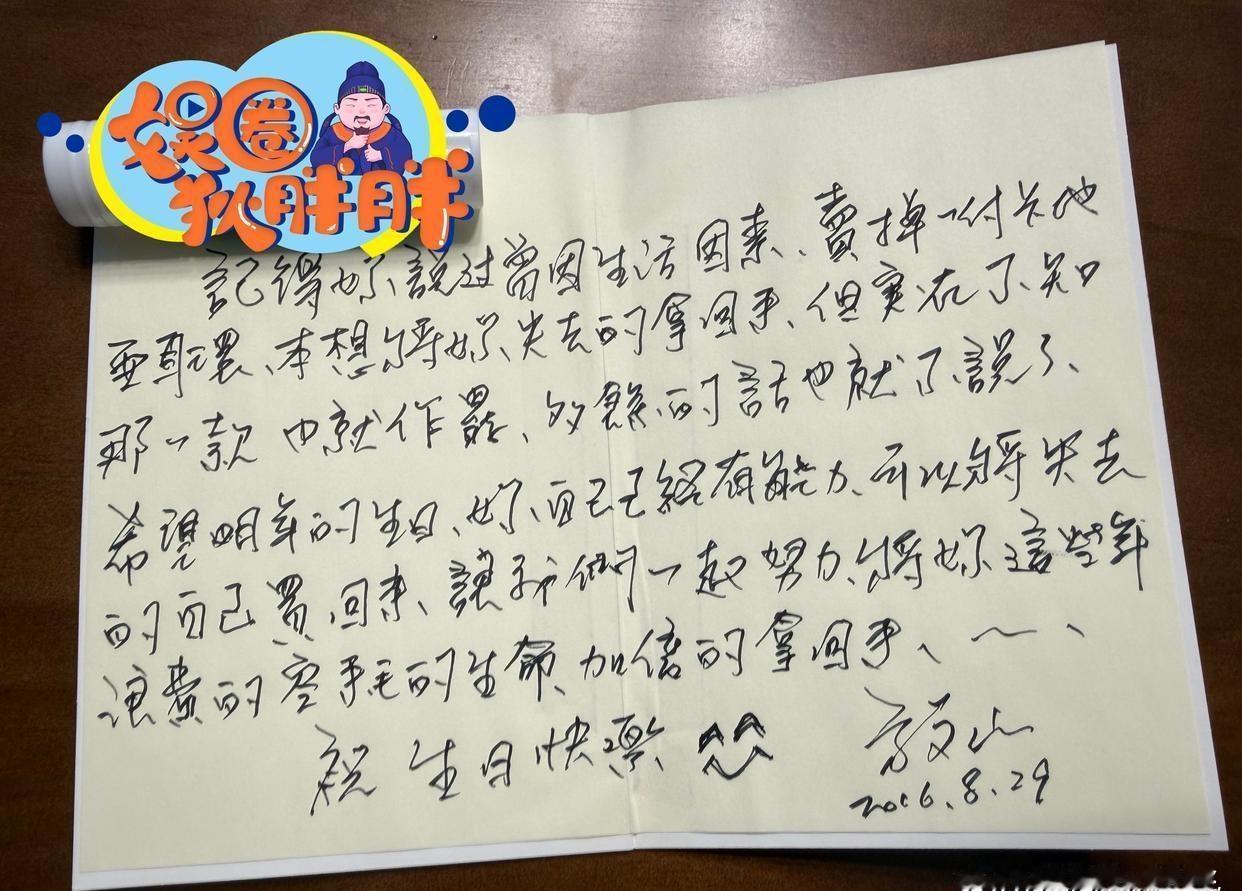 娱圈
狄胖胖
記得妳說过曾因生活因素、賣掉一付卡地
亜耳環、本想將妳失去的拿回来、但実在不知
那一款 也就作罷、多餘的話也就不說了、
希望明年的生日、妳自己已経有能力、可以將失去
的自己買回来、讓我們一起努力、將妳這些年
浪費的 的生命、加倍的拿回来、～、
祝 生日快樂
2016.8.29